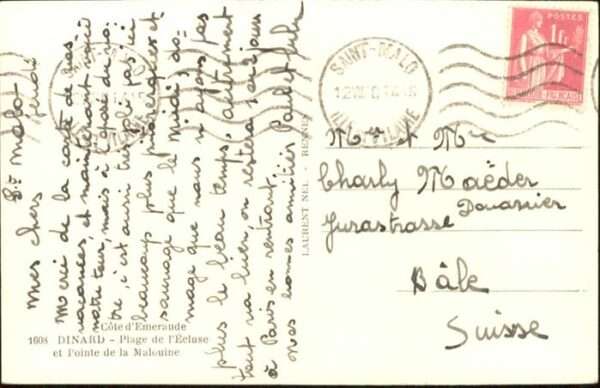 St Malo
jeudi
Mes chers
Merci de la carte de vos
vacances, et maintenant voici
notre tour, mais à côté du vô-
tre, c'est aussi très joli, par ici
beaucoup plus pittoresque et
sauvage que le Midi; dom-
mage que nous n'ayons pas
plus le beau temps, autrement
tout va bien, on restera
à Paris en rentrant
nos bonnes amitiés Paul et
Côte d'Emeraude
1608 DINARD - Plage de l'Ecluse
et Pointe de la Malouine
LAURENT NEL - RENNES
SAINT-MALO
ILLE-ET-VILAINE
SAINT-MALO
ILLE-ET-VILAINE
POSTES
1F
REPUBLIQUE FRANÇAISE
Mr et Me
Charly Maëder
Douanier
Jurastrasse
Bâle
Suisse